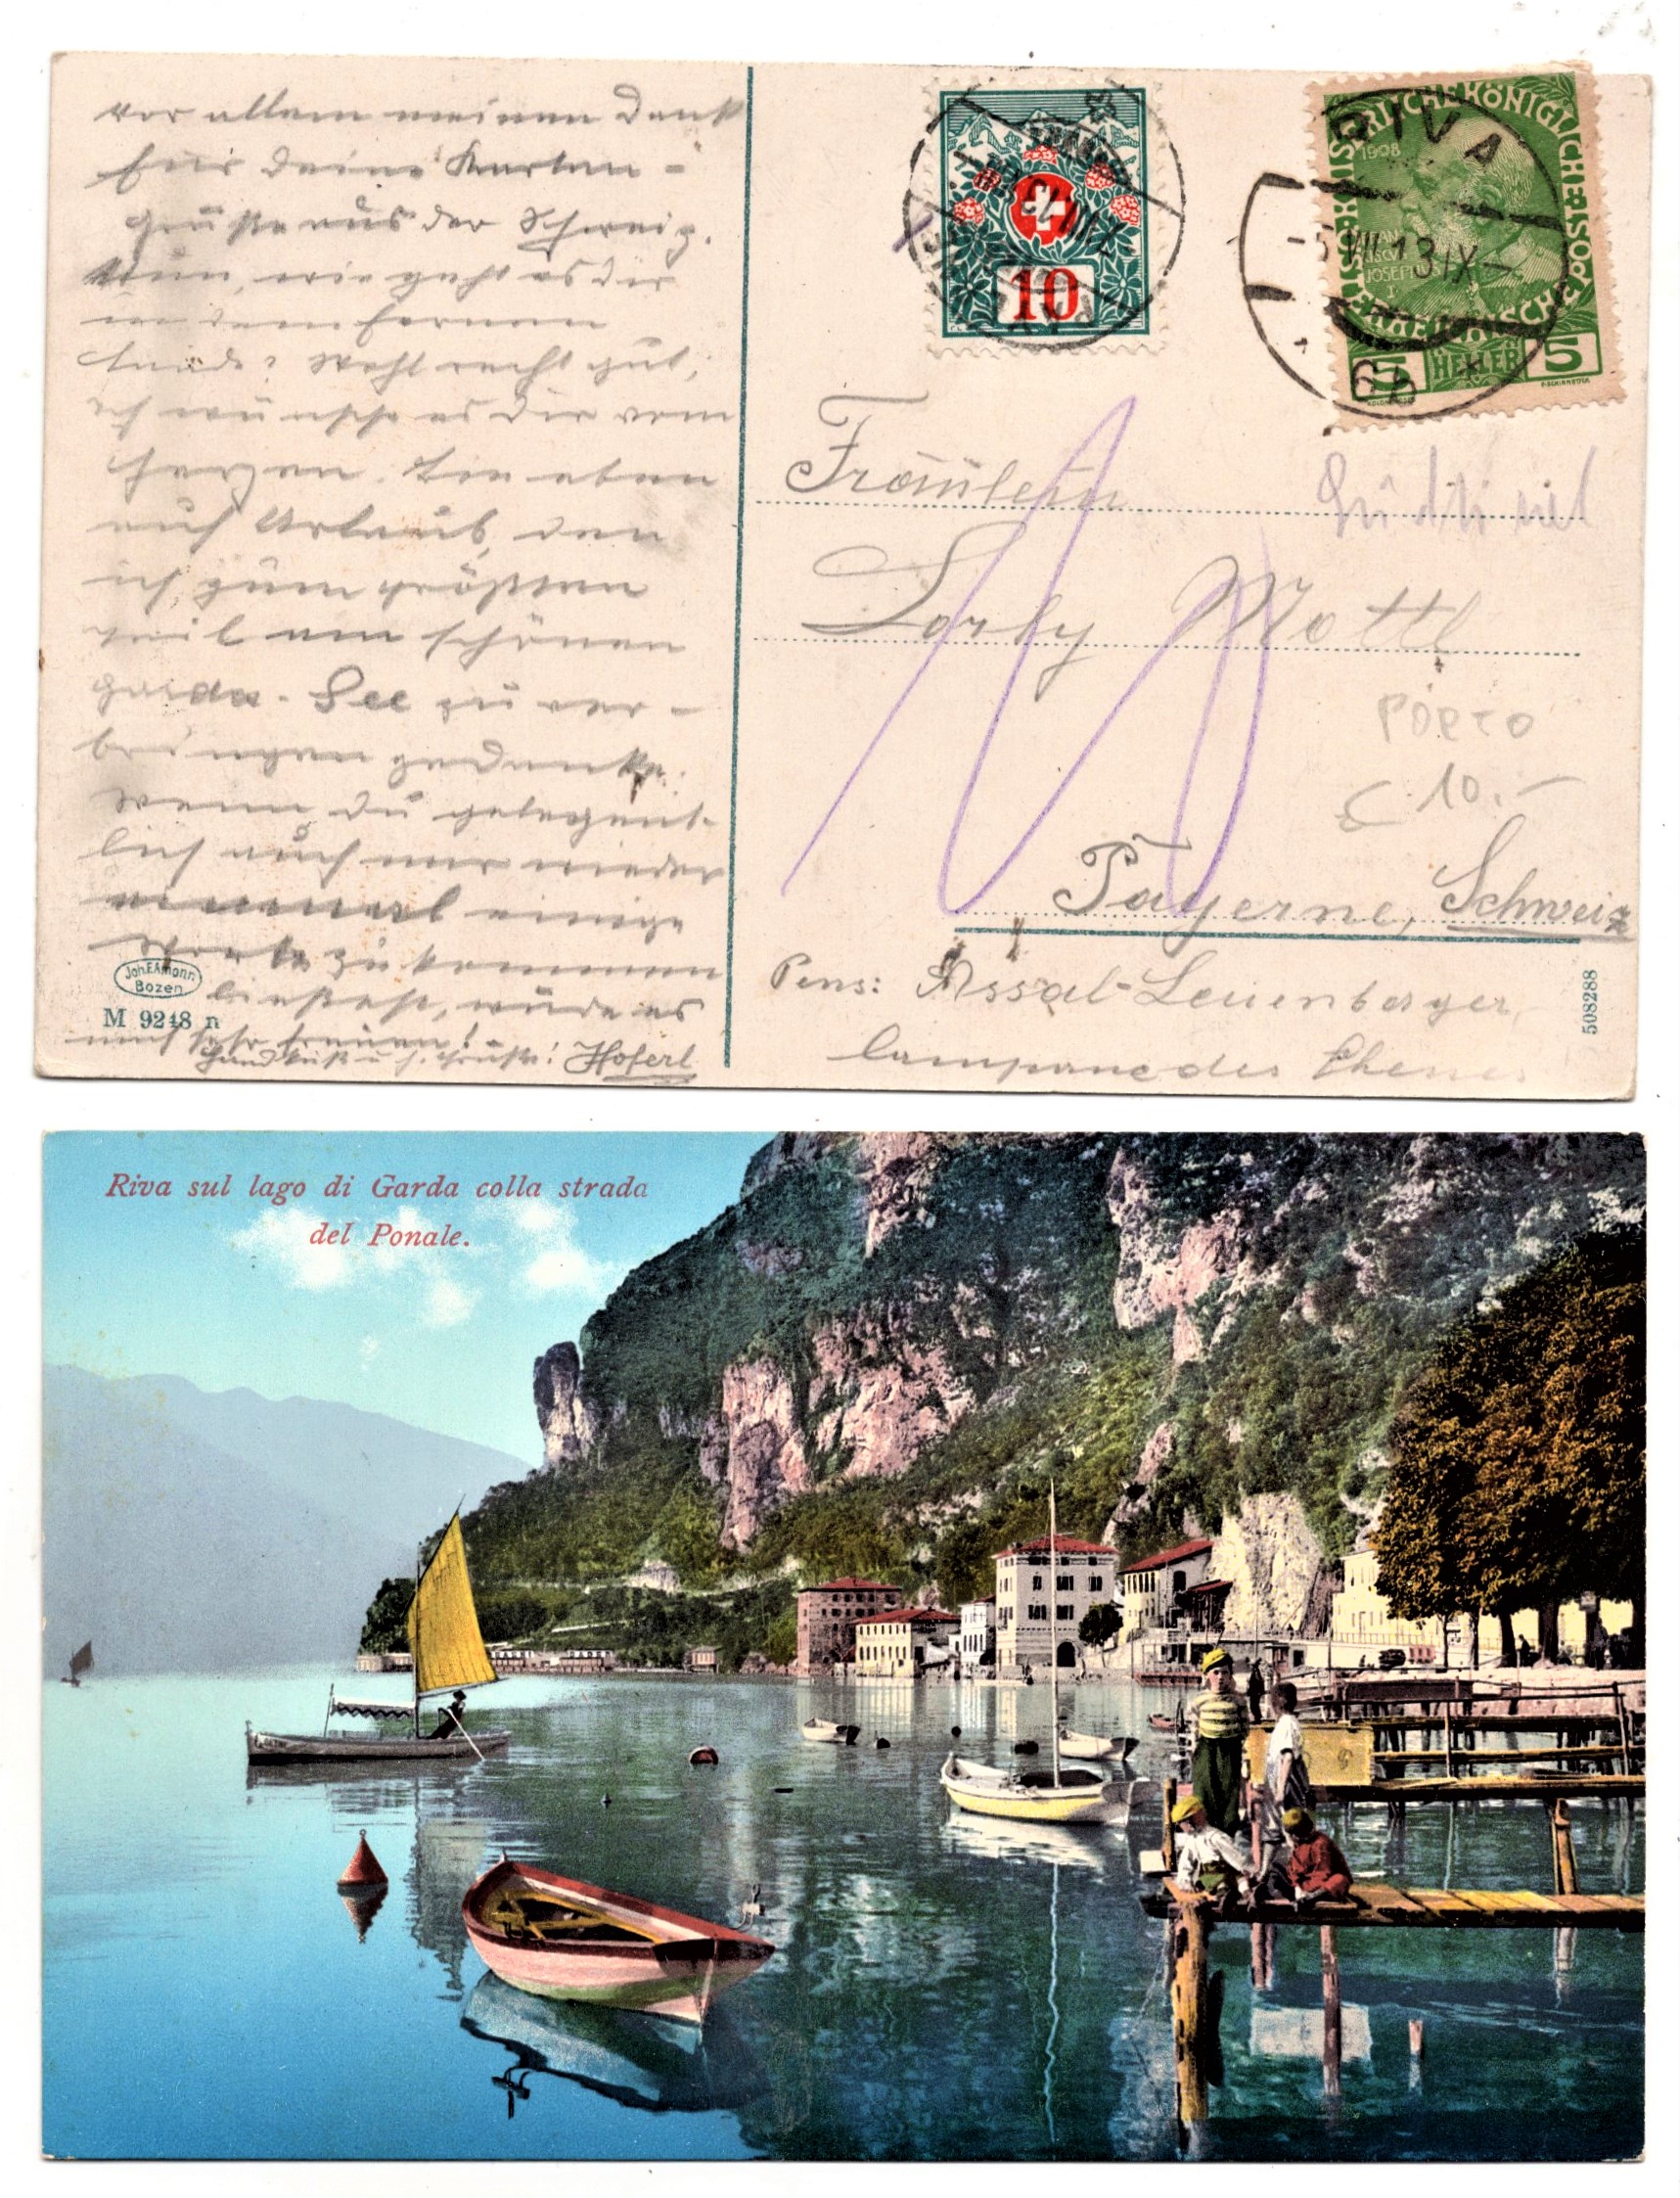 vor allem meinen Dank
für deine Karten-
grüße aus der Schweiz.
Nun, wie geht es dir
in dem fernen
Lande? Wohl recht gut,
ich wünsche es dir vom
Herzen. Bin eben
auf Urlaub, den
ich zum größten
Teil am schönen
Garda-See zu ver-
bringen gedenke.
Wenn du gelegent-
lich auch mir wieder
einmal einige
Worte zukommen
ließest, würde es
mich sehr freuen!
Handkuß u. h. Grüße! Hoferl
Joh.F.Amonn
Bozen
M 9248 n
10
KAISERLICHE KÖNIGLICHE ÖSTERREICHISCHE POST
1908
FRANCISCVS
JOSEPHVS
I
5 HELLER 5
RIVA
-5.VIII.13 IX-
6b *
Fräulein
Lorly Mottl
PORTO
10.-
Payerne, Schweiz
Pens: Assal-Leuenberger
Campagne des
508288
Riva sul lago di Garda colla strada
del Ponale.